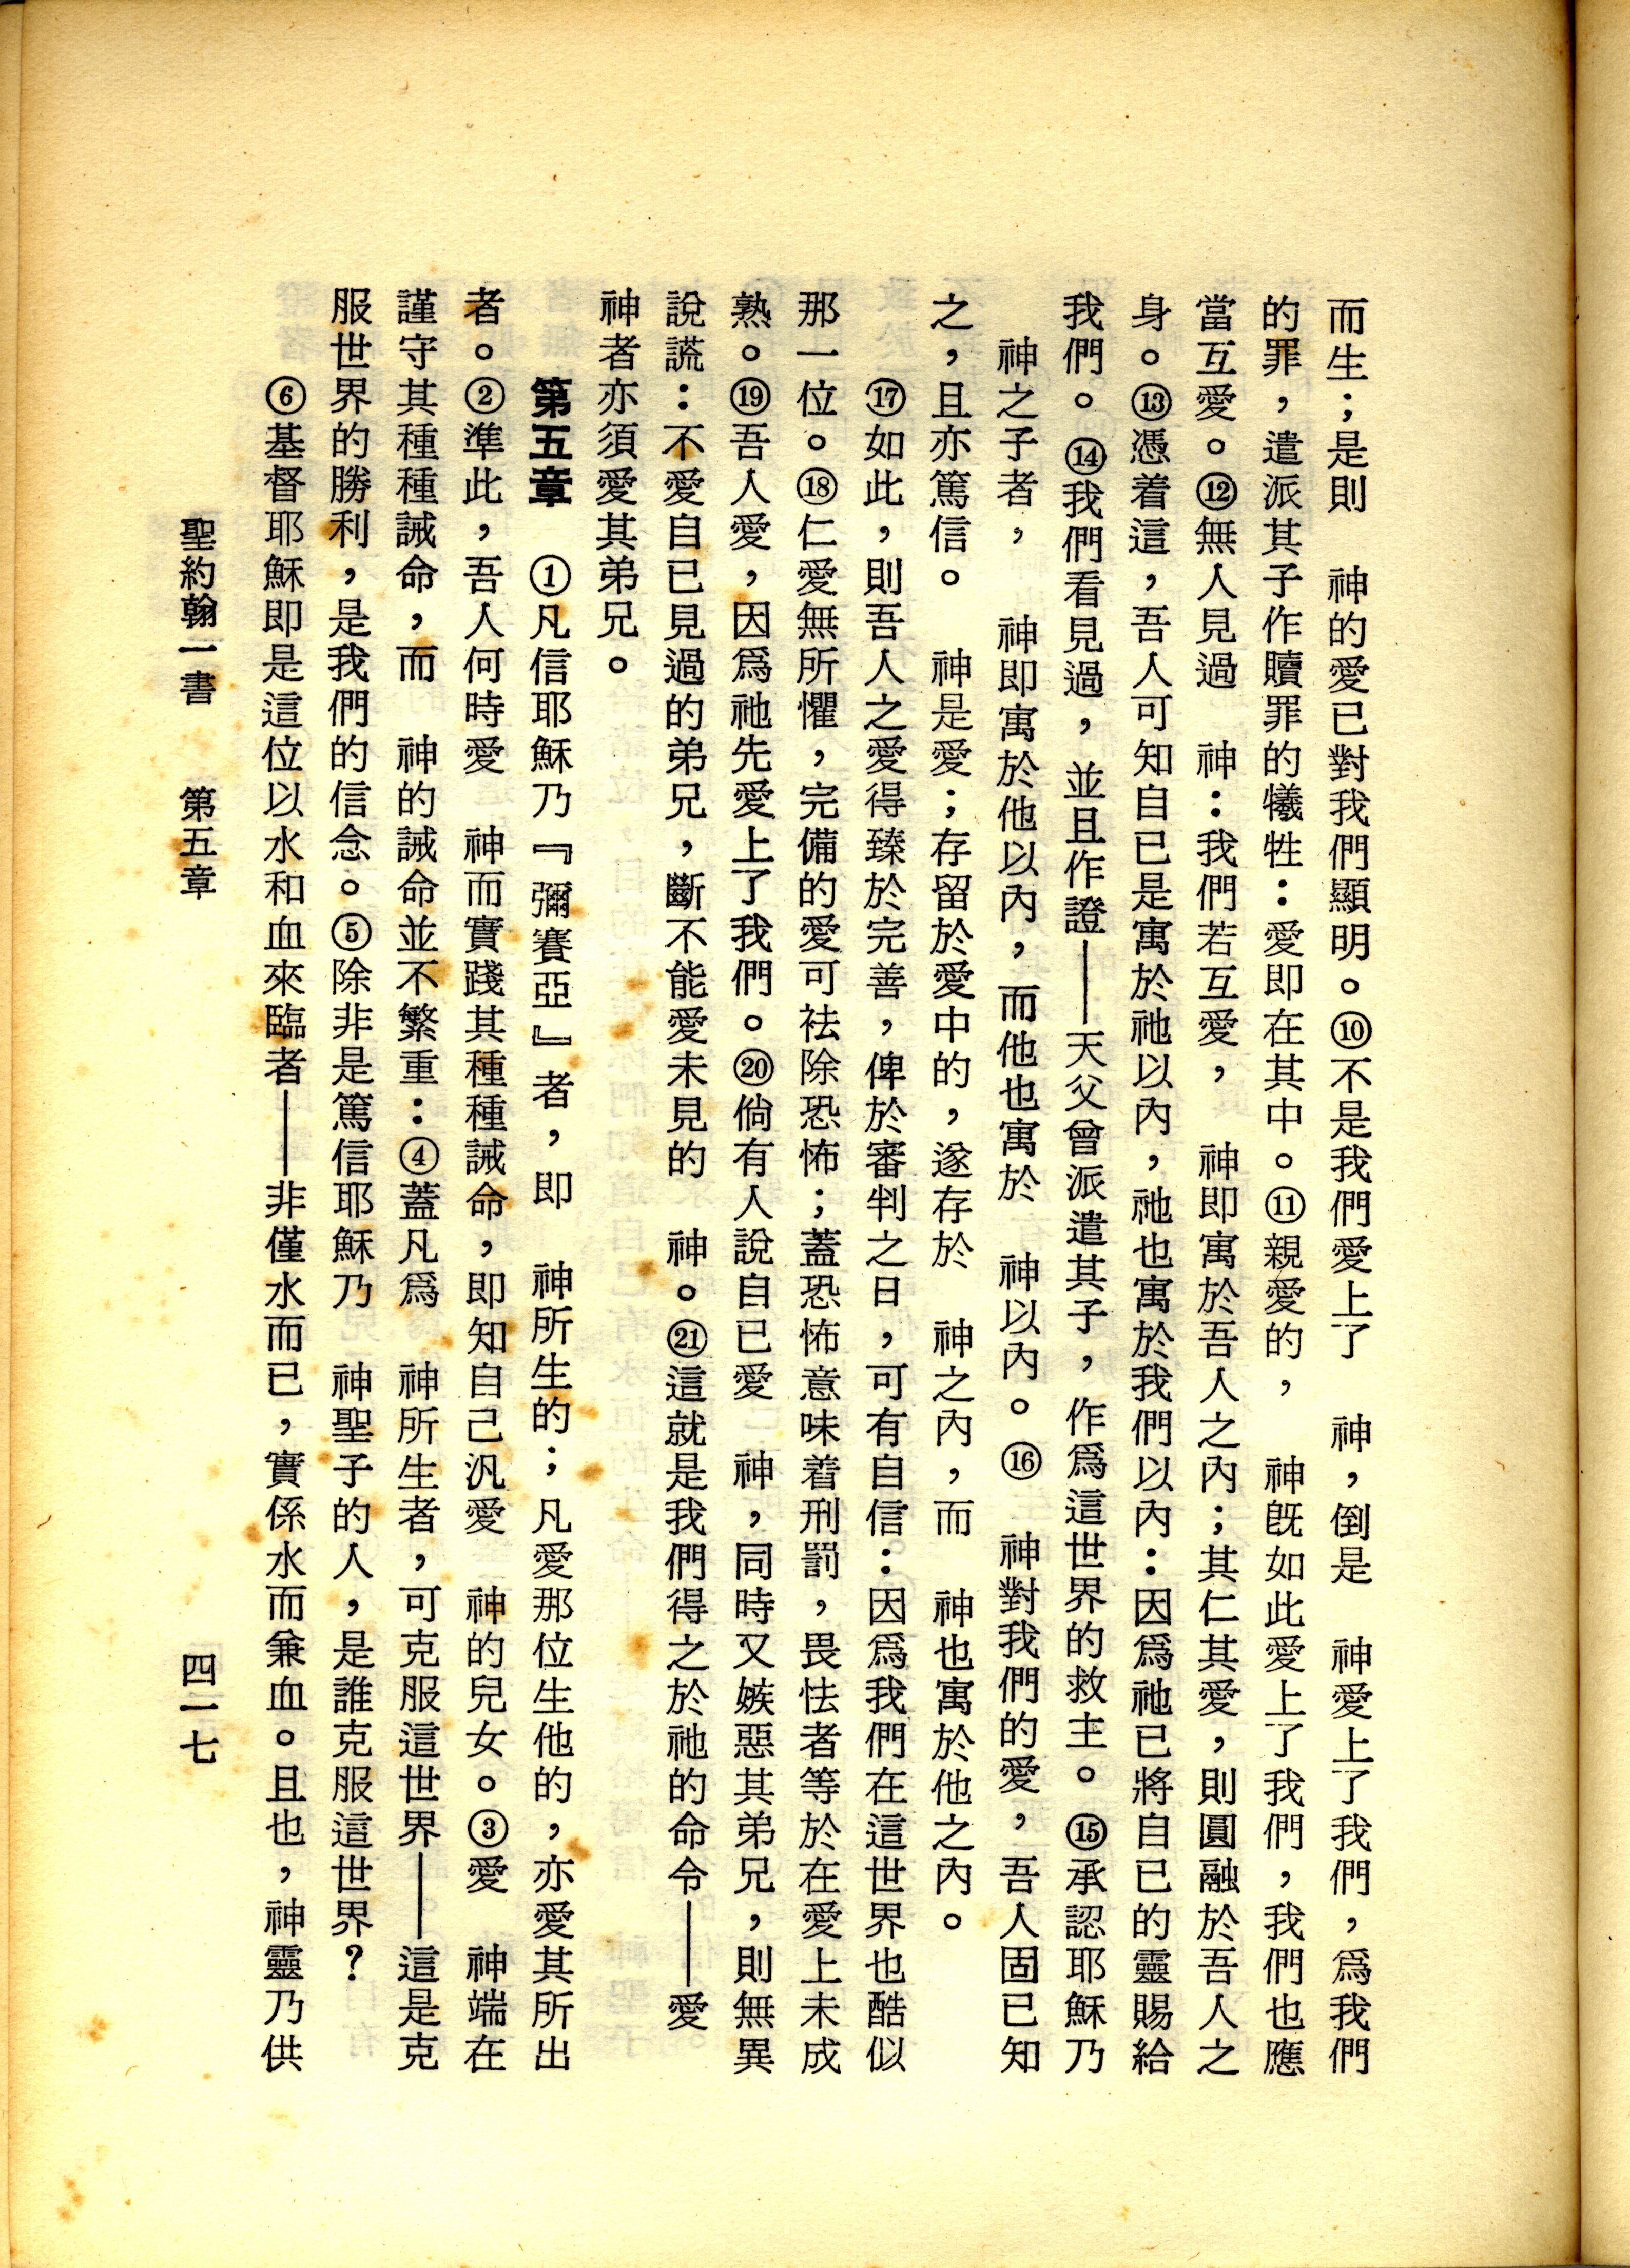 而生；是則　神的愛已對我們顯明。⑩不是我們愛上了　神，倒是　神愛上了我們，爲我們
的罪，遣派其子作贖罪的犧牲：愛即在其中。⑪親愛的，　神旣如此愛上了我們，我們也應
當互愛。⑫無人見過　神：我們若互愛，　神即寓於吾人之內；其仁其愛，則圓融於吾人之
身。⑬憑着這，吾人可知自已是寓於祂以內，祂也寓於我們以內：因爲祂已將自已的靈賜給
我們。⑭我們看見過，並且作證——天父曾派遣其子，作爲這世界的救主。⑮承認耶穌乃
　神之子者，　神即寓於他以內，而他也寓於　神以內。⑯　神對我們的愛，吾人固已知
之，且亦篤信。　神是愛；存留於愛中的，遂存於　神之內，而　神也寓於他之內。
⑰如此，則吾人之愛得臻於完善，俾於審判之日，可有自信：因爲我們在這世界也酷似
那一位。⑱仁愛無所懼，完備的愛可祛除恐怖；蓋恐怖意味着刑罰，畏怯者等於在愛上未成
熟。⑲吾人愛，因爲祂先愛上了我們。⑳倘有人說自已愛　神，同時又嫉惡其弟兄，則無異
說謊：不愛自已見過的弟兄，斷不能愛未見的　神。㉑這就是我們得之於祂的命令——愛
神者亦須愛其弟兄。
第五章　①凡信耶穌乃『彌賽亞』者，即　神所生的；凡愛那位生他的，亦愛其所出
者。②準此，吾人何時愛　神而實踐其種種誡命，即知自己汎愛　神的兒女。③愛　神端在
謹守其種種誡命，而　神的誡命並不繁重：④蓋凡爲　神所生者，可克服這世界——這是克
服世界的勝利，是我們的信念。⑤除非是篤信耶穌乃　神聖子的人，是誰克服這世界？
⑥基督耶穌即是這位以水和血來臨者——非僅水而已，實係水而兼血。且也，神靈乃供
聖約翰一書　第五章　四一七